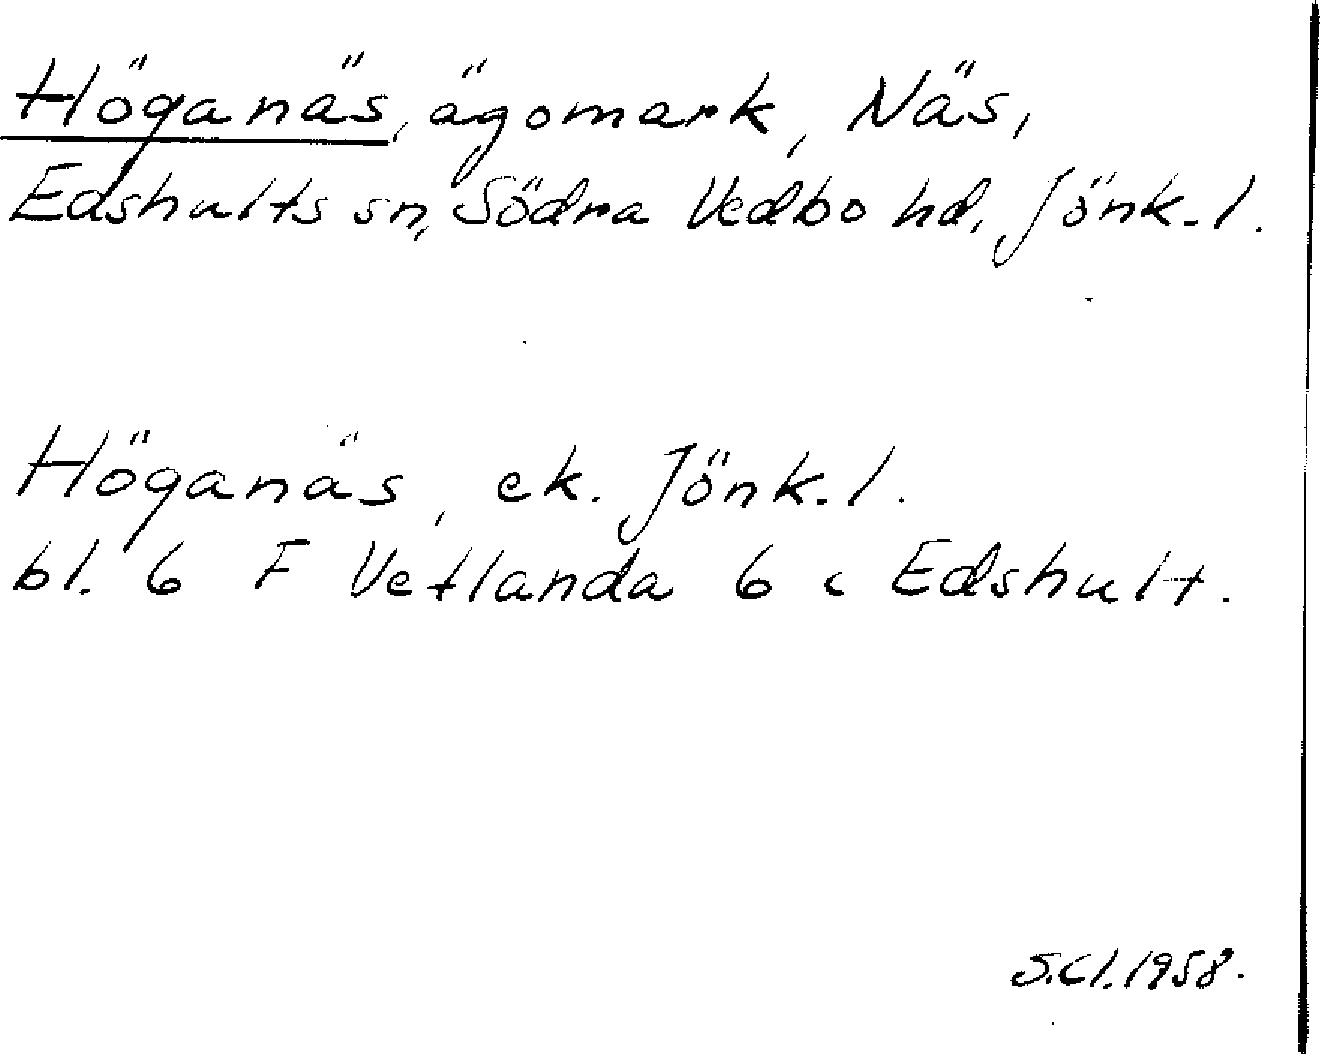 Höganäs, ägomark, Näs,
Edshults sn, Södra Vedbo hd, Jönk. l.
Höganäs, ek. Jönk. l.
bl. 6 F Vetlanda 6 c Edshult.
S.Cl. 1958.